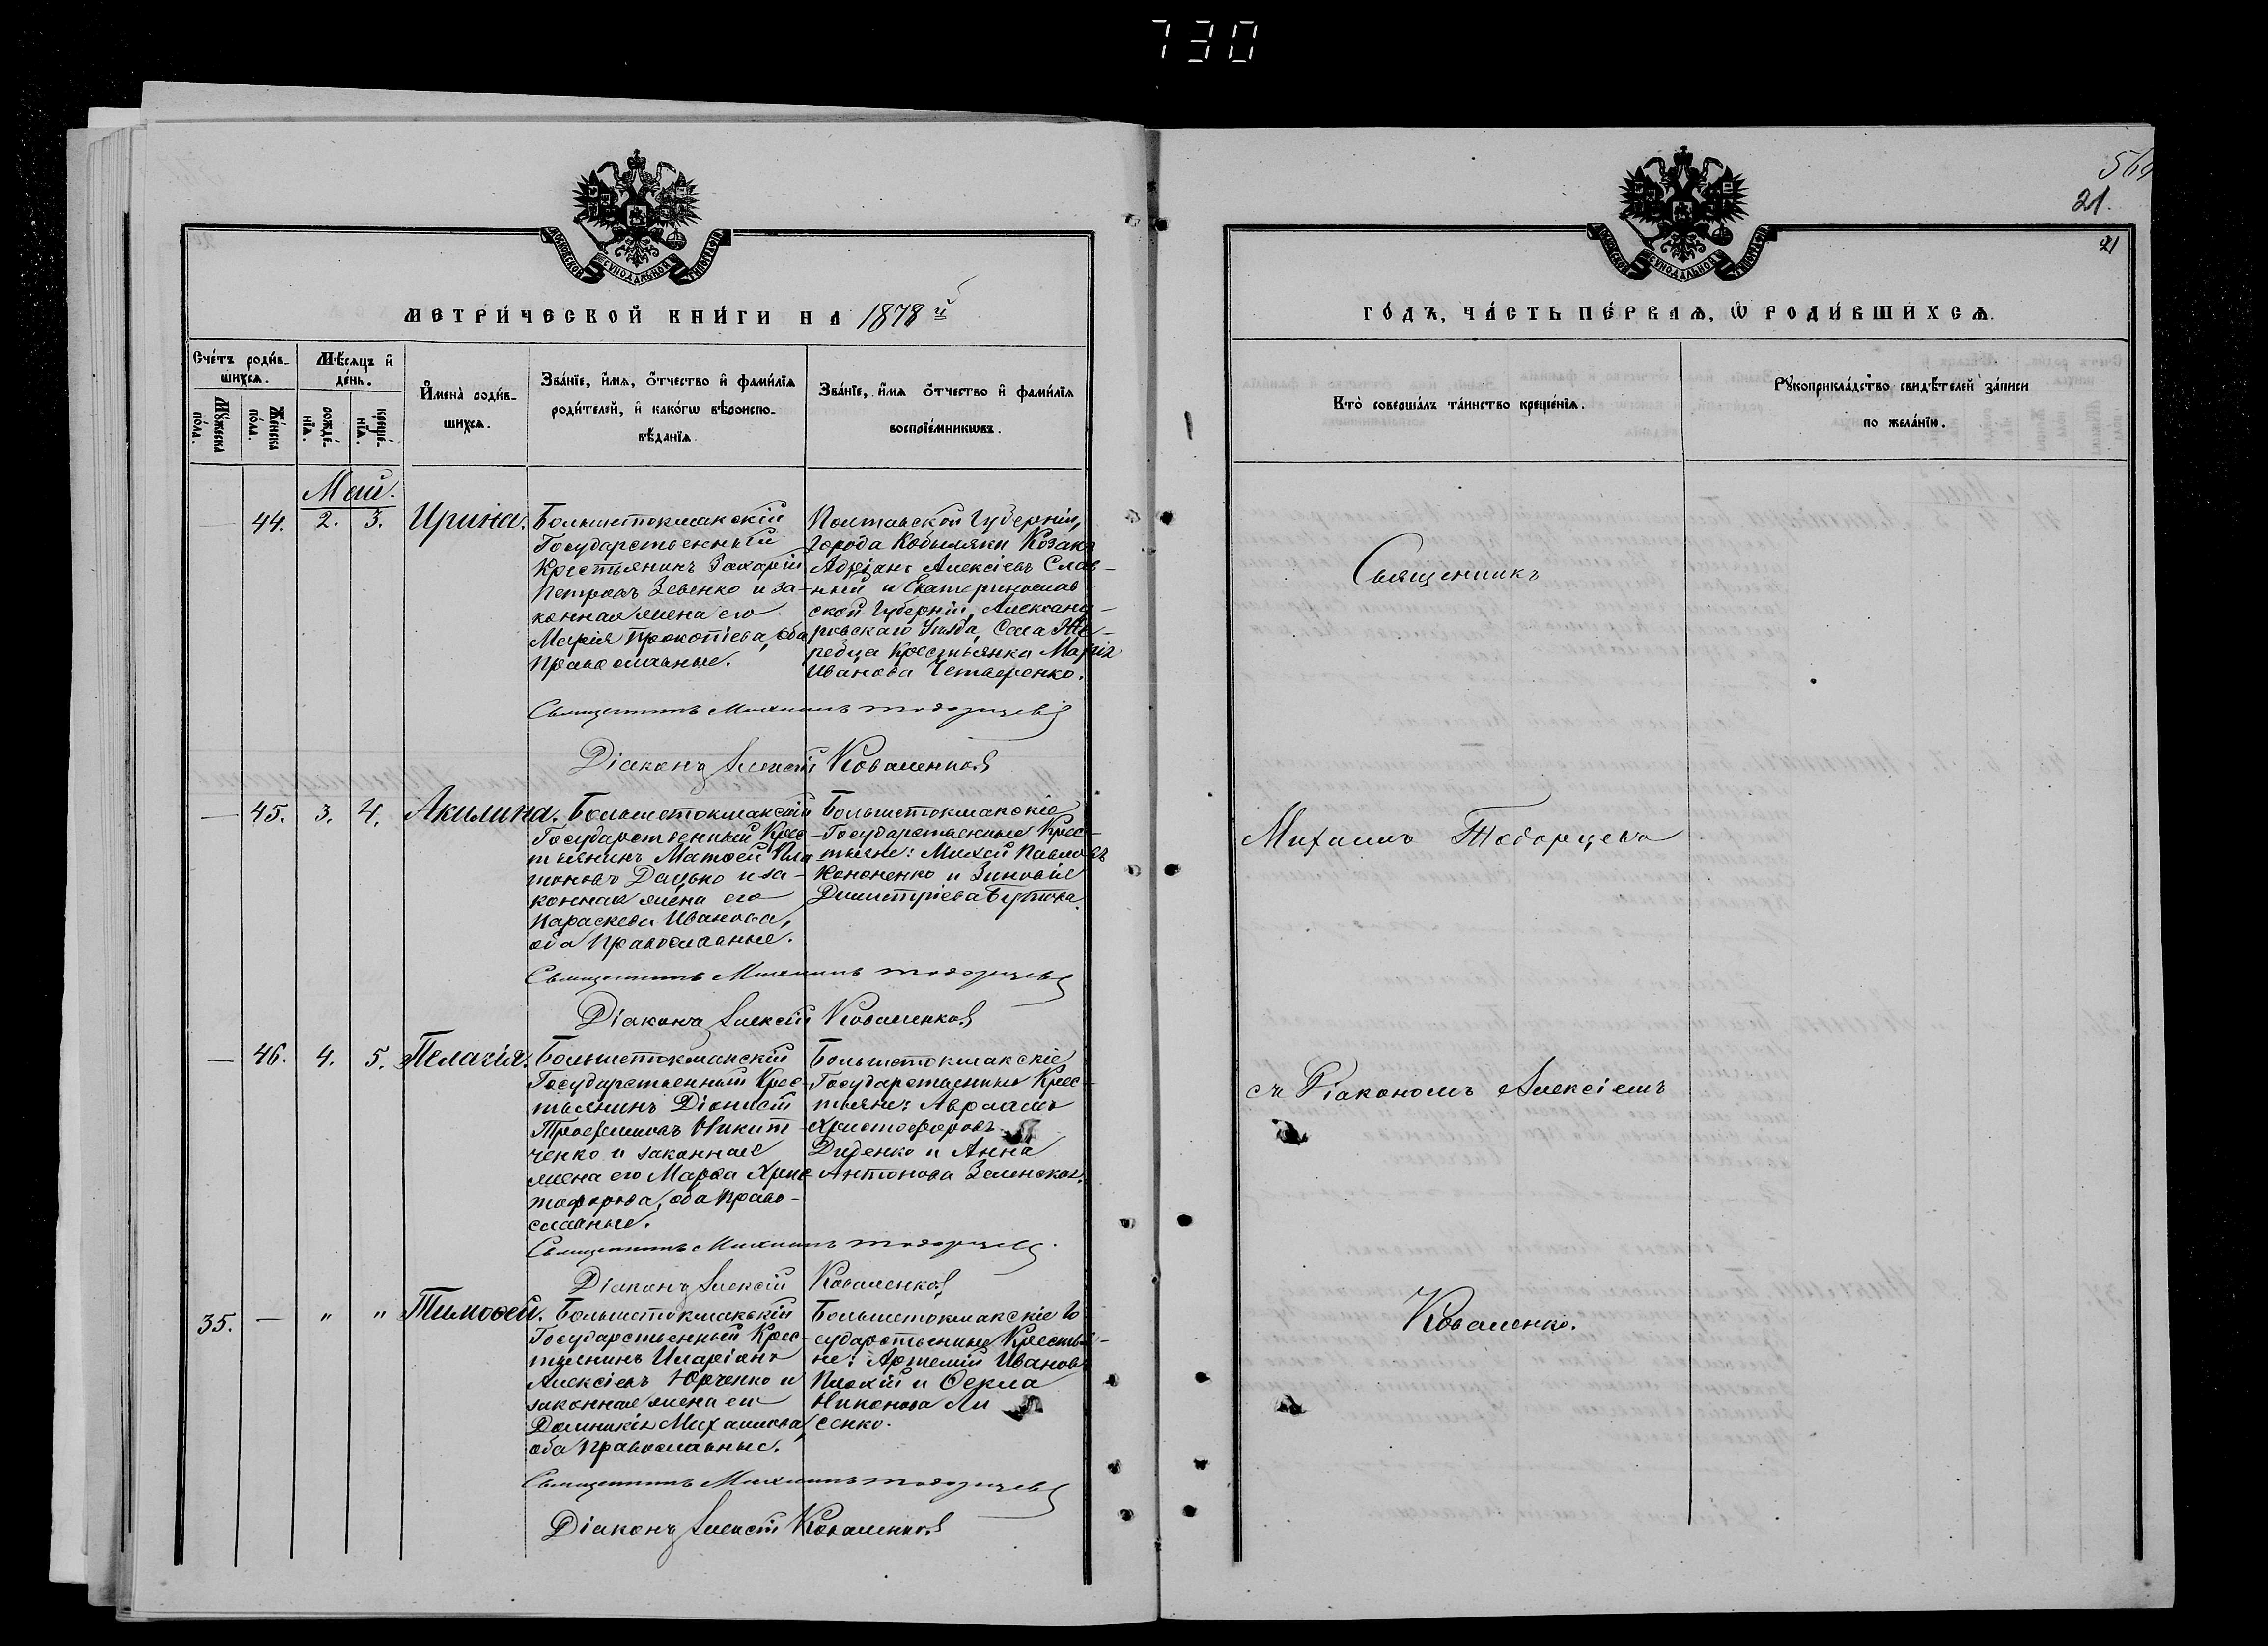 730
569
21.
21
МОСКОВСКОЙ СУНОДАЛЬНОЙ ТИПОГРАФІИ
МЕТРИ́ЧЕСКОЙ КНИ́ГИ НА 1878й
Сче́тъ роди́в-
шихсѧ.
Мѣ́сѧцъ и҆
де́нь.
Мꙋ́жеска
по́ла.
Же́нска
по́ла.
рожде́-
нїѧ.
креще́-
нїѧ.
И҆мена̀ роди́в-
шихсѧ.
Зва́нїе, и҆́мѧ, ѻ҆́тчество и҆ фами́лїѧ
роди́телей, и҆ како́гѡ вѣроиспо-
вѣ́данїѧ.
Зва́нїе, и҆́мѧ ѻ҆́тчество и҆ фами́лїѧ
воспрїе́мникѡвъ.
Май.
44. 2. 3. Ирина.
Большетокмакскій
Государственный
Крестьянинъ Захарій
Петровъ Зевенко и за-
конная жена его
Марія Прокопіева, оба
Православные.
Полтавской Губерніи,
города Кобыляки Козакъ
Адріанъ Алексіевъ Слав-
ный и Екатеринослав
ской Губерніи, Александ-
ровскаго Уѣзда, Села Же-
ребца Крестьянка Марія
Иванова Четверенко.
Священникъ Михаилъ Тодорцевъ
Діаконъ Алексій Коваленковъ
— 45. 3. 4. Акилина.
Большетокмакскій
Государственный Крес-
тьянинъ Матѳей Пла
тоновъ Дацько и за-
конная жена его
Параскева Иванова,
оба Православные.
Большетокмакскіе
Государственные Крес-
тьяне: Михей Павловъ
Кононенко и Зиновія
Димитріева Бутова.
Священникъ Михаилъ Тодорцевъ
Діаконъ Алексій Коваленковъ
— 46. 4. 5. Пелагія.
Большетокмакскій
Государственный Крес-
тьянинъ Діонисій
Трофимовъ Никит-
ченко и законная
жена его Марѳа Хрис-
тофорова, оба Право-
славные.
Большетокмакскіе
Государственные Крес-
тьяне: Авраамъ
Христофоровъ
Диденко и Анна
Антонова Зеленская.
Священникъ Михаилъ Тодорцевъ.
Діаконъ Алексій Коваленковъ
35. — " " Тимоѳей.
Большетокмакскій
Государственный Крес-
тьянинъ Иларіонъ
Алексіевъ Юрченко и
законная жена его
Домникія Михаилова,
оба Православные.
Большетокмакскіе Го
сударственные Крестья-
не: Артемій Ивановъ
Плохій и Ѳекла
Никонова Ли
сенко.
Священникъ Михаилъ Тодорцевъ
Діаконъ Алексій Коваленковъ
МОСКОВСКОЙ СУНОДАЛЬНОЙ ТИПОГРАФІИ
ГО́ДЪ, ЧА́СТЬ ПЕ́РВАѦ, Ѡ҆ РОДИ́ВШИХСѦ.
Кто̀ соверша́лъ та́инство креще́нїѧ.
Рꙋкоприкла́дство свидѣ́телей за́писи
по жела́нїю.
Священникъ
Михаилъ Тодорцевъ
съ Діакономъ Алексіемъ
Коваленко.